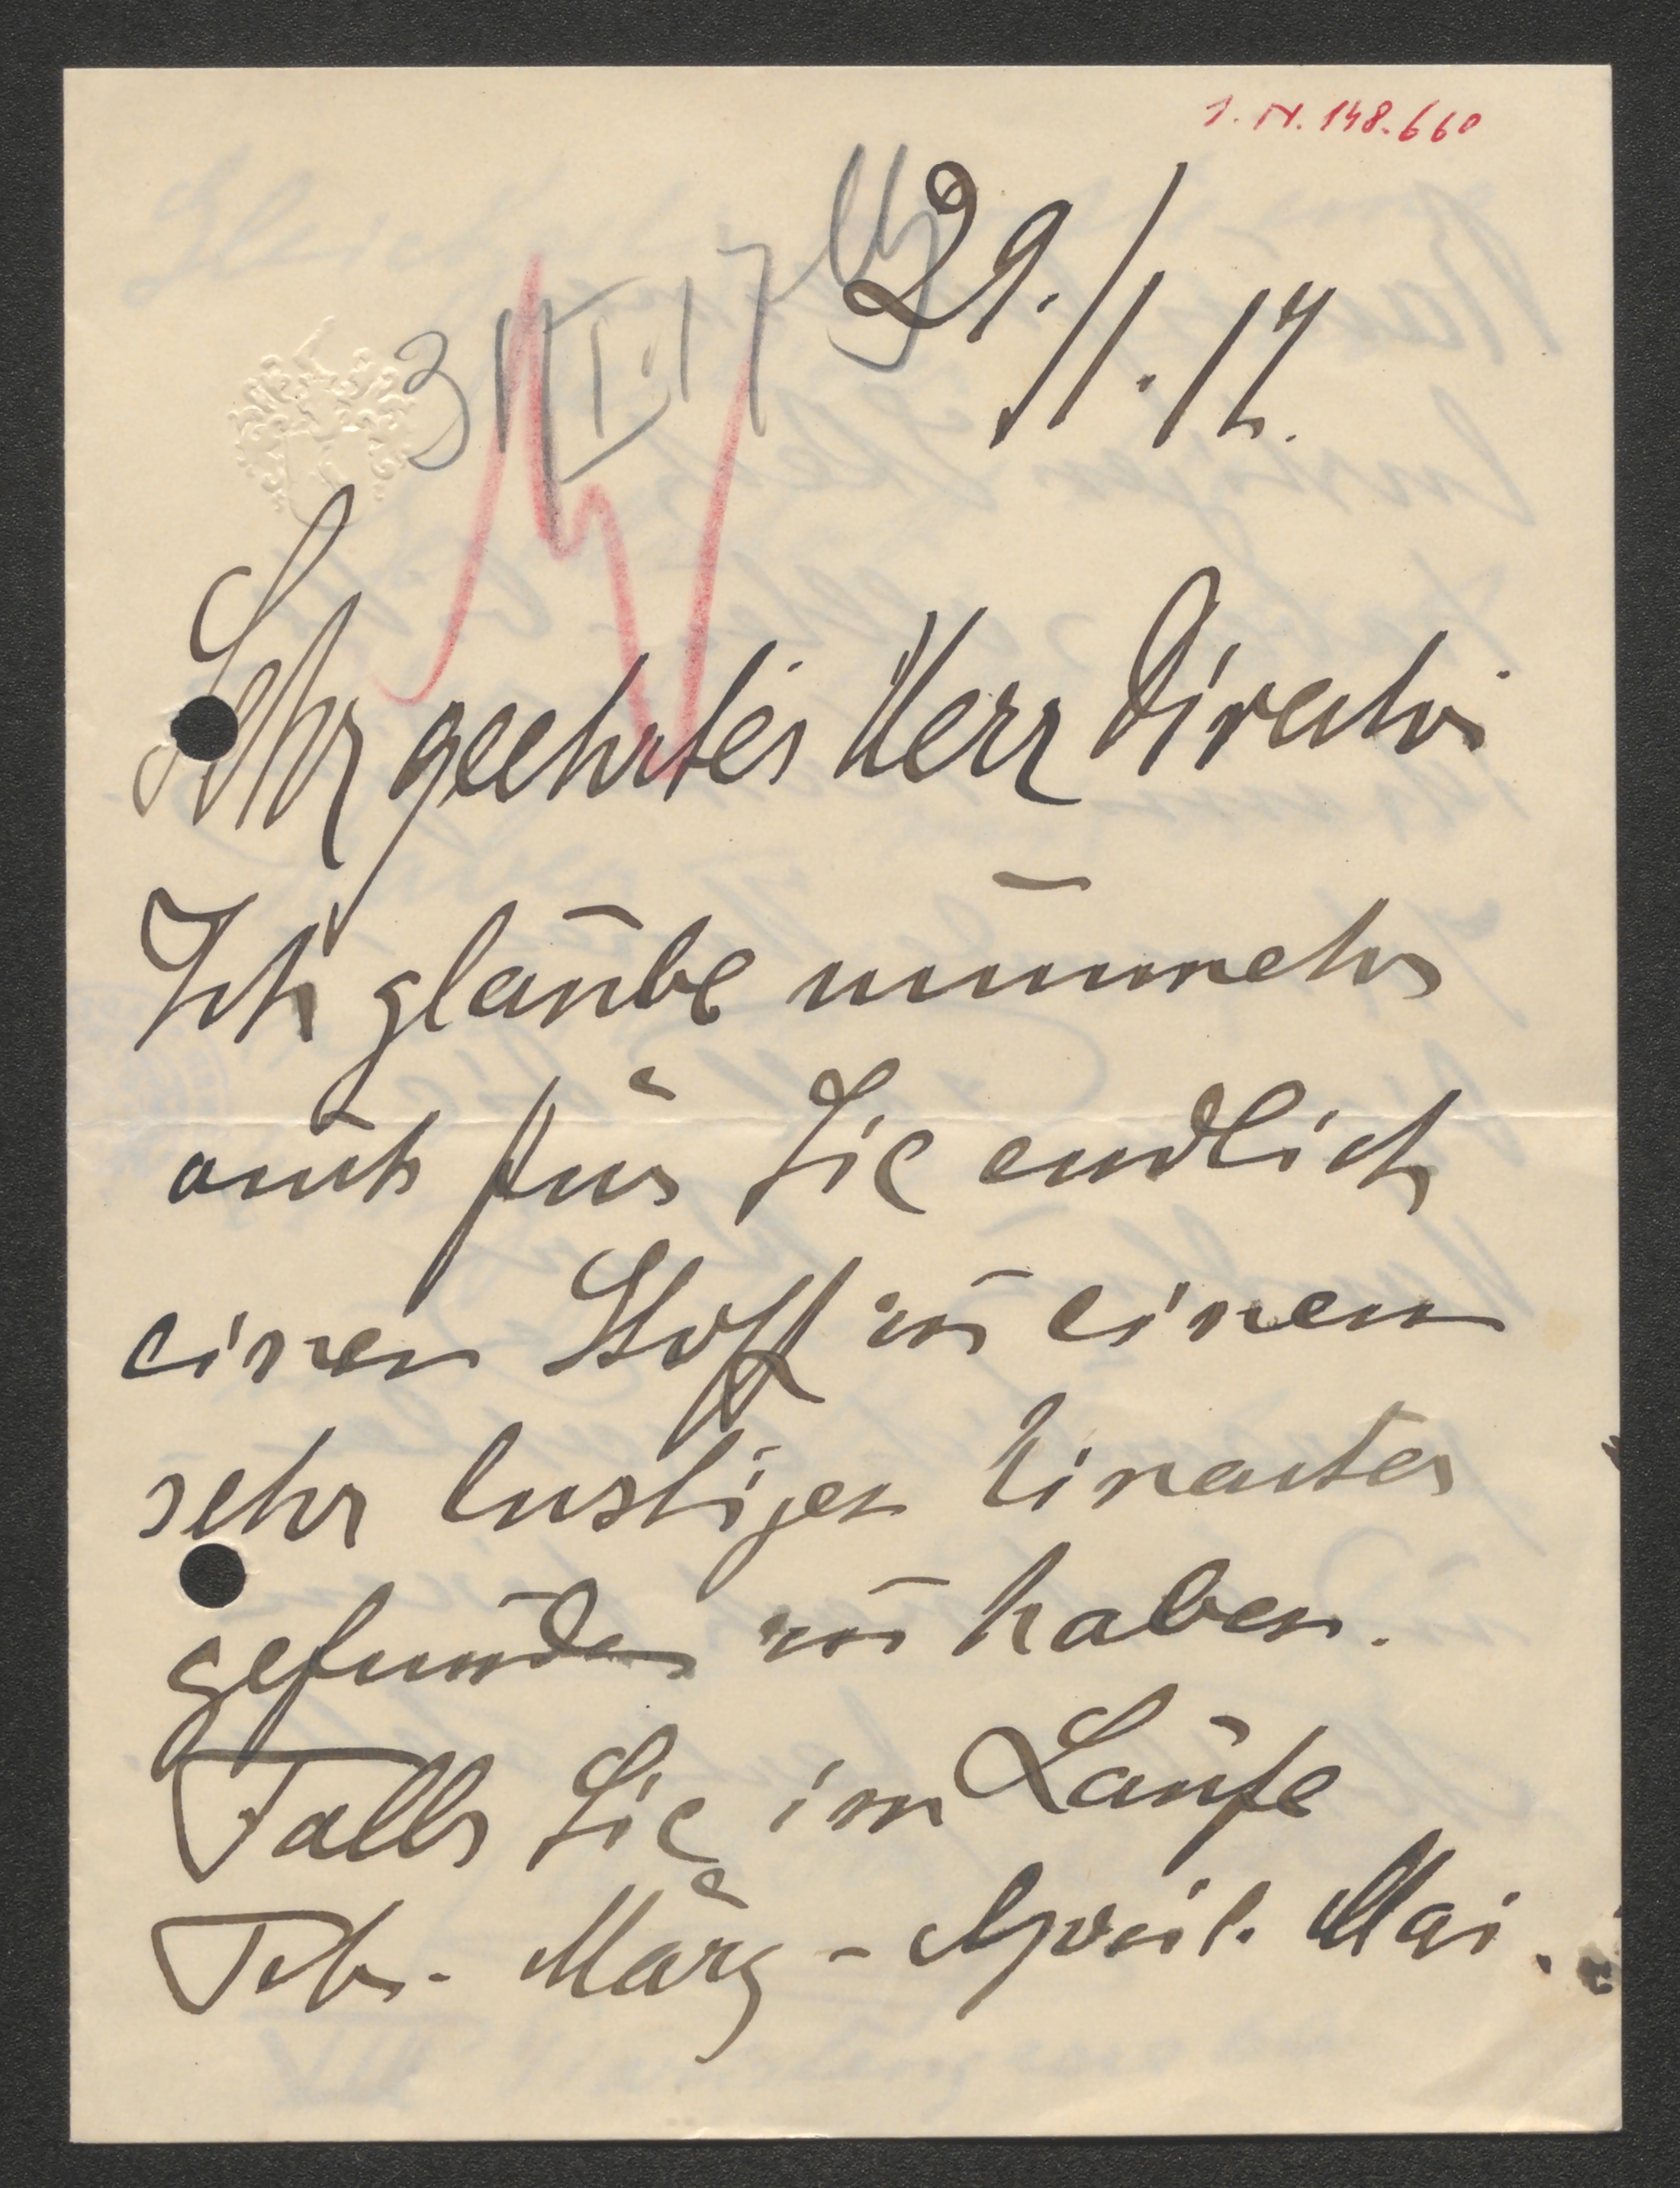 I. N. 148.660
29./1.17.
31 I. 17
Sehr geehrter Herr Direktor
Ich glaube nunmehr
auch für Sie endlich
einen Stoff zu einem
sehr lustigen Einacter
gefunden zu haben.
Falls Sie im Laufe
Feb. März - April. Mai.